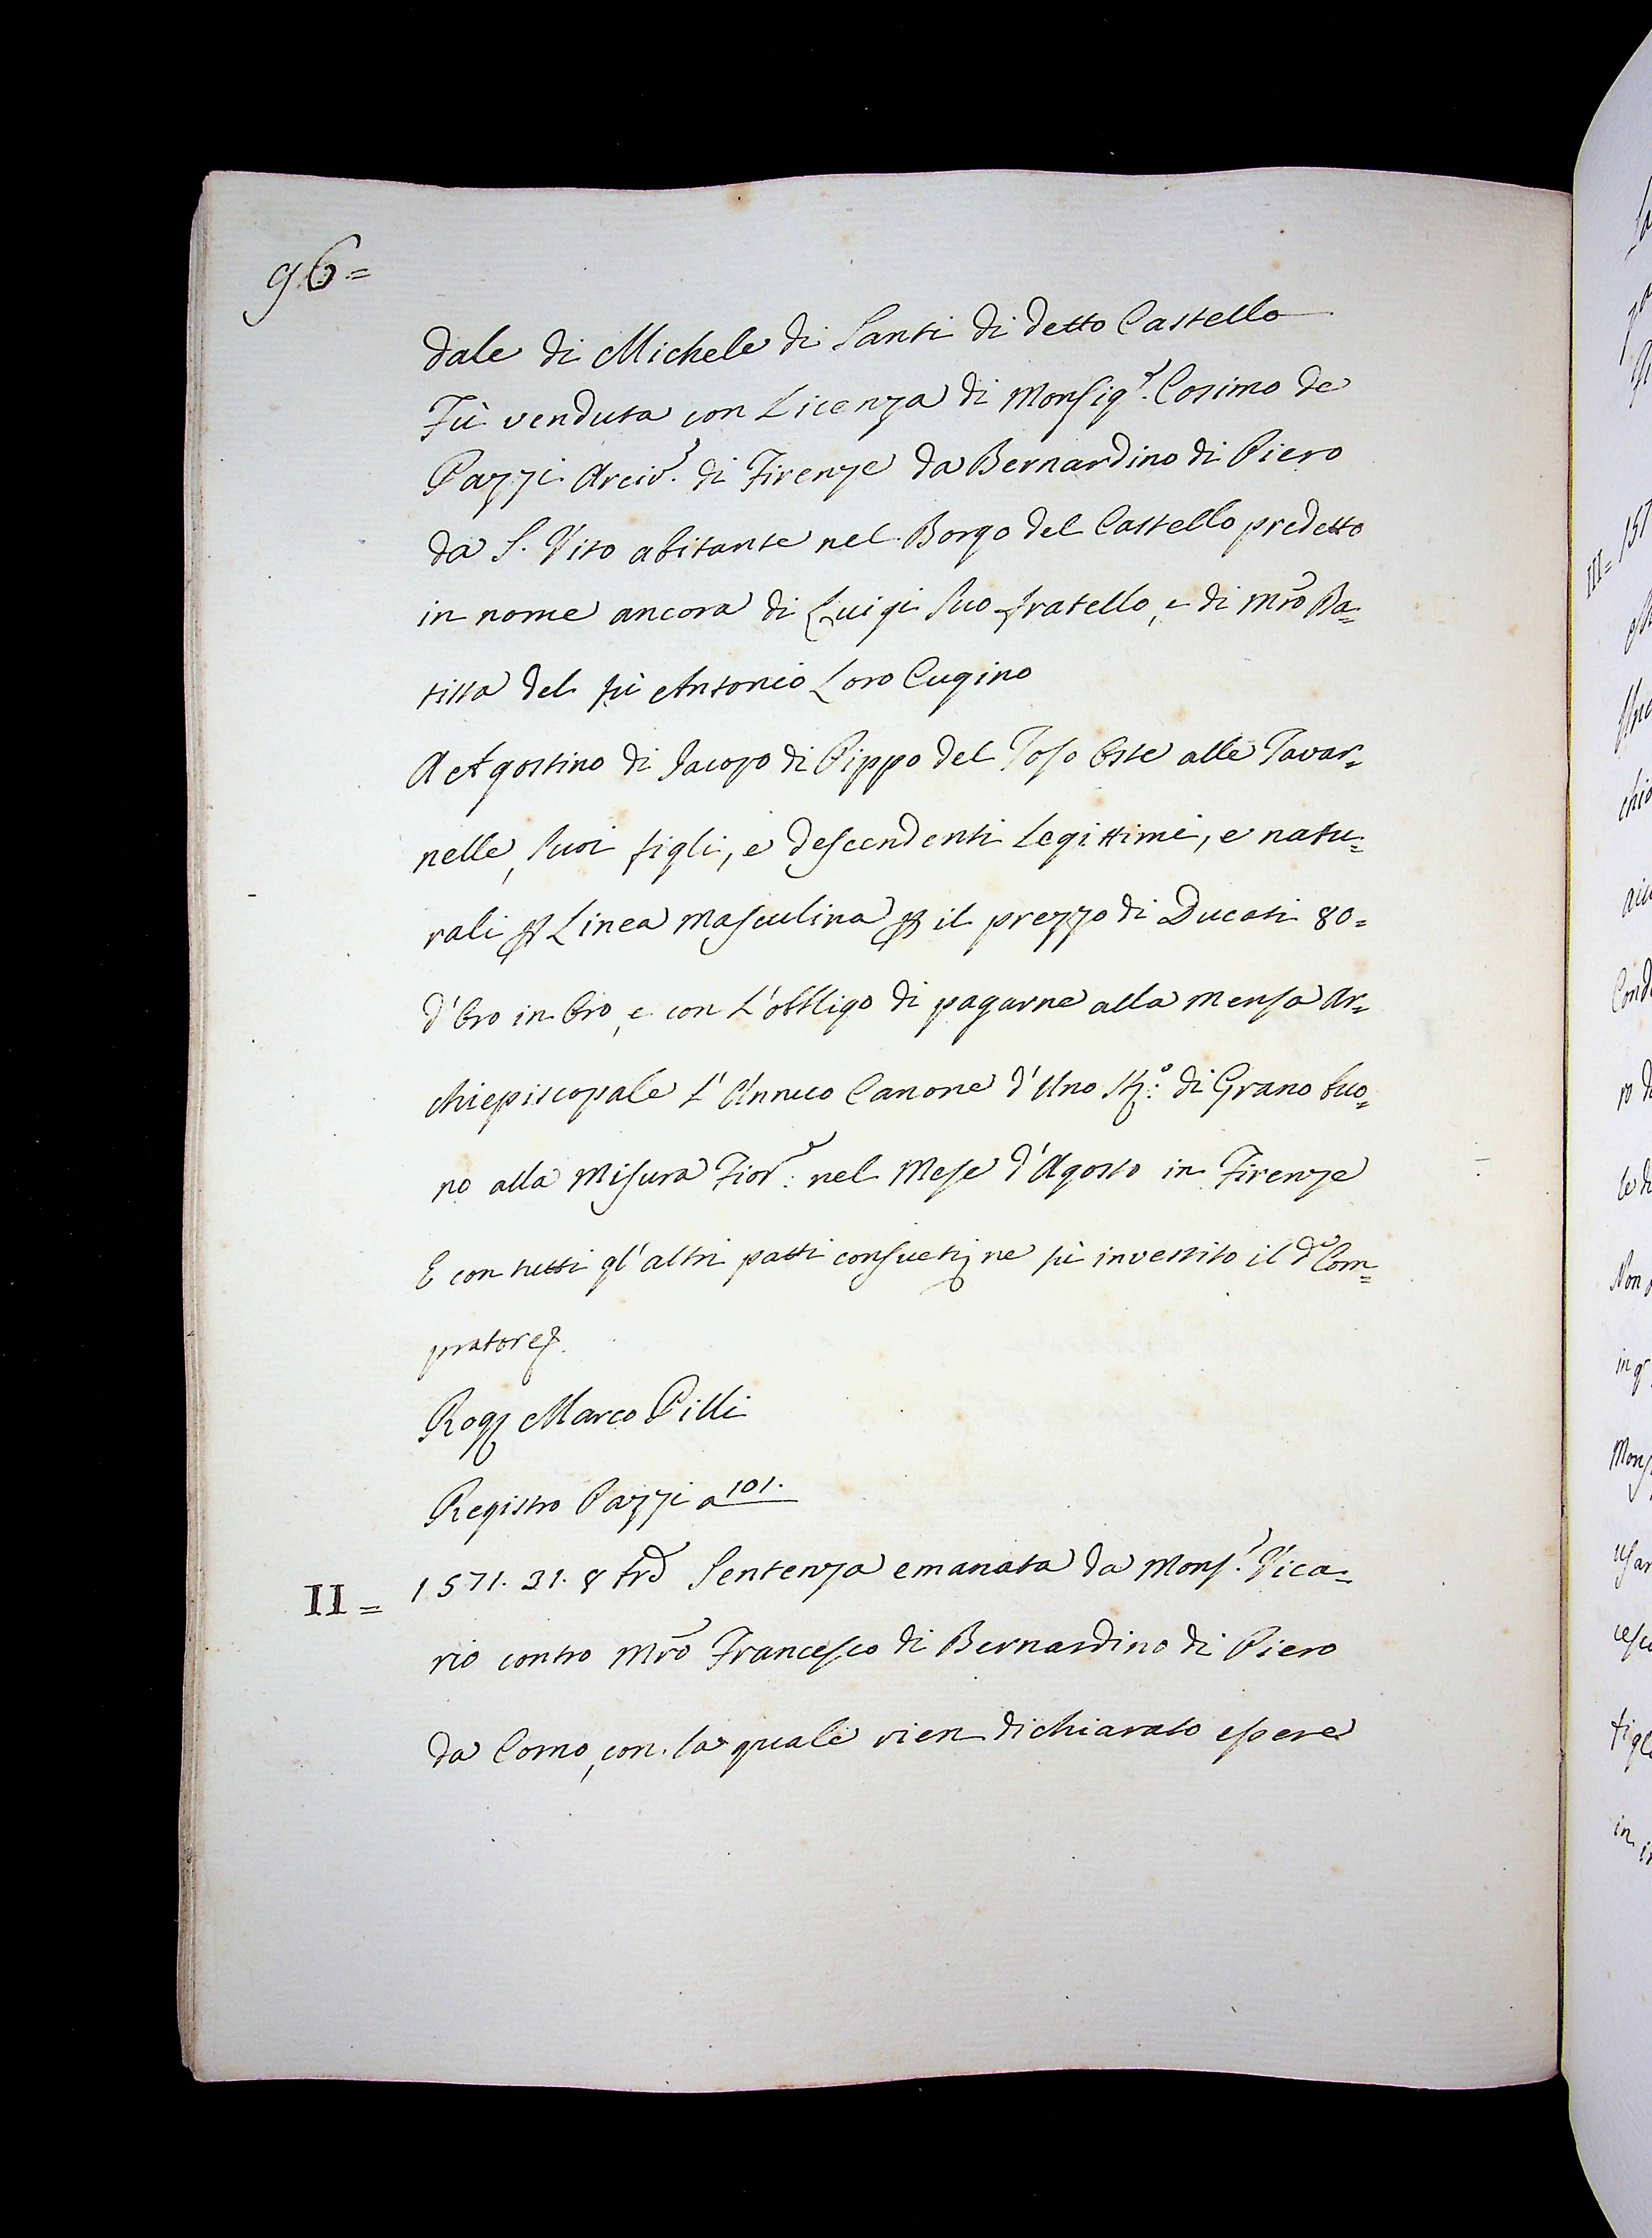 96=
dale di Michele di Santi di detto Castello
Fù venduta con Licenza di Monsigr. Cosimo de
Pazzi Arcivo. di Firenze da Bernardino di Piero
da S. Vito abitante nel Borgo del Castello predetto
in nome ancora di Luigi suo fratello, e di Mro Ba=
tista del fù Antonio Loro Cugino
A Agostino di Jacopo di Pippo del Toso Oste alle Tavar=
nelle, suoi figli, e descendenti Legittimi, e natu=
rali p Linea Masculina p il prezzo di Ducati 80=
d'Oro in Oro, e con L'obbligo di pagarne alla Mensa Ar=
chiepiscopale L'Annuo Canone d'Uno St:o di Grano buo=
no alla Misura Fiore: nel Mese d'Agosto in Firenze
E con tutti gl'altri patti consueti, ne fù investito il do Com=
pratore
Rog Marco Pilli
Registro Pazzi a 101.
II= 1571. 31. 8bre Sentenza emanata da Monsr. Vica=
rio contro Mro Francesco di Bernardino di Piero
da Como, con la quale vien dichiarato essere
III= 157